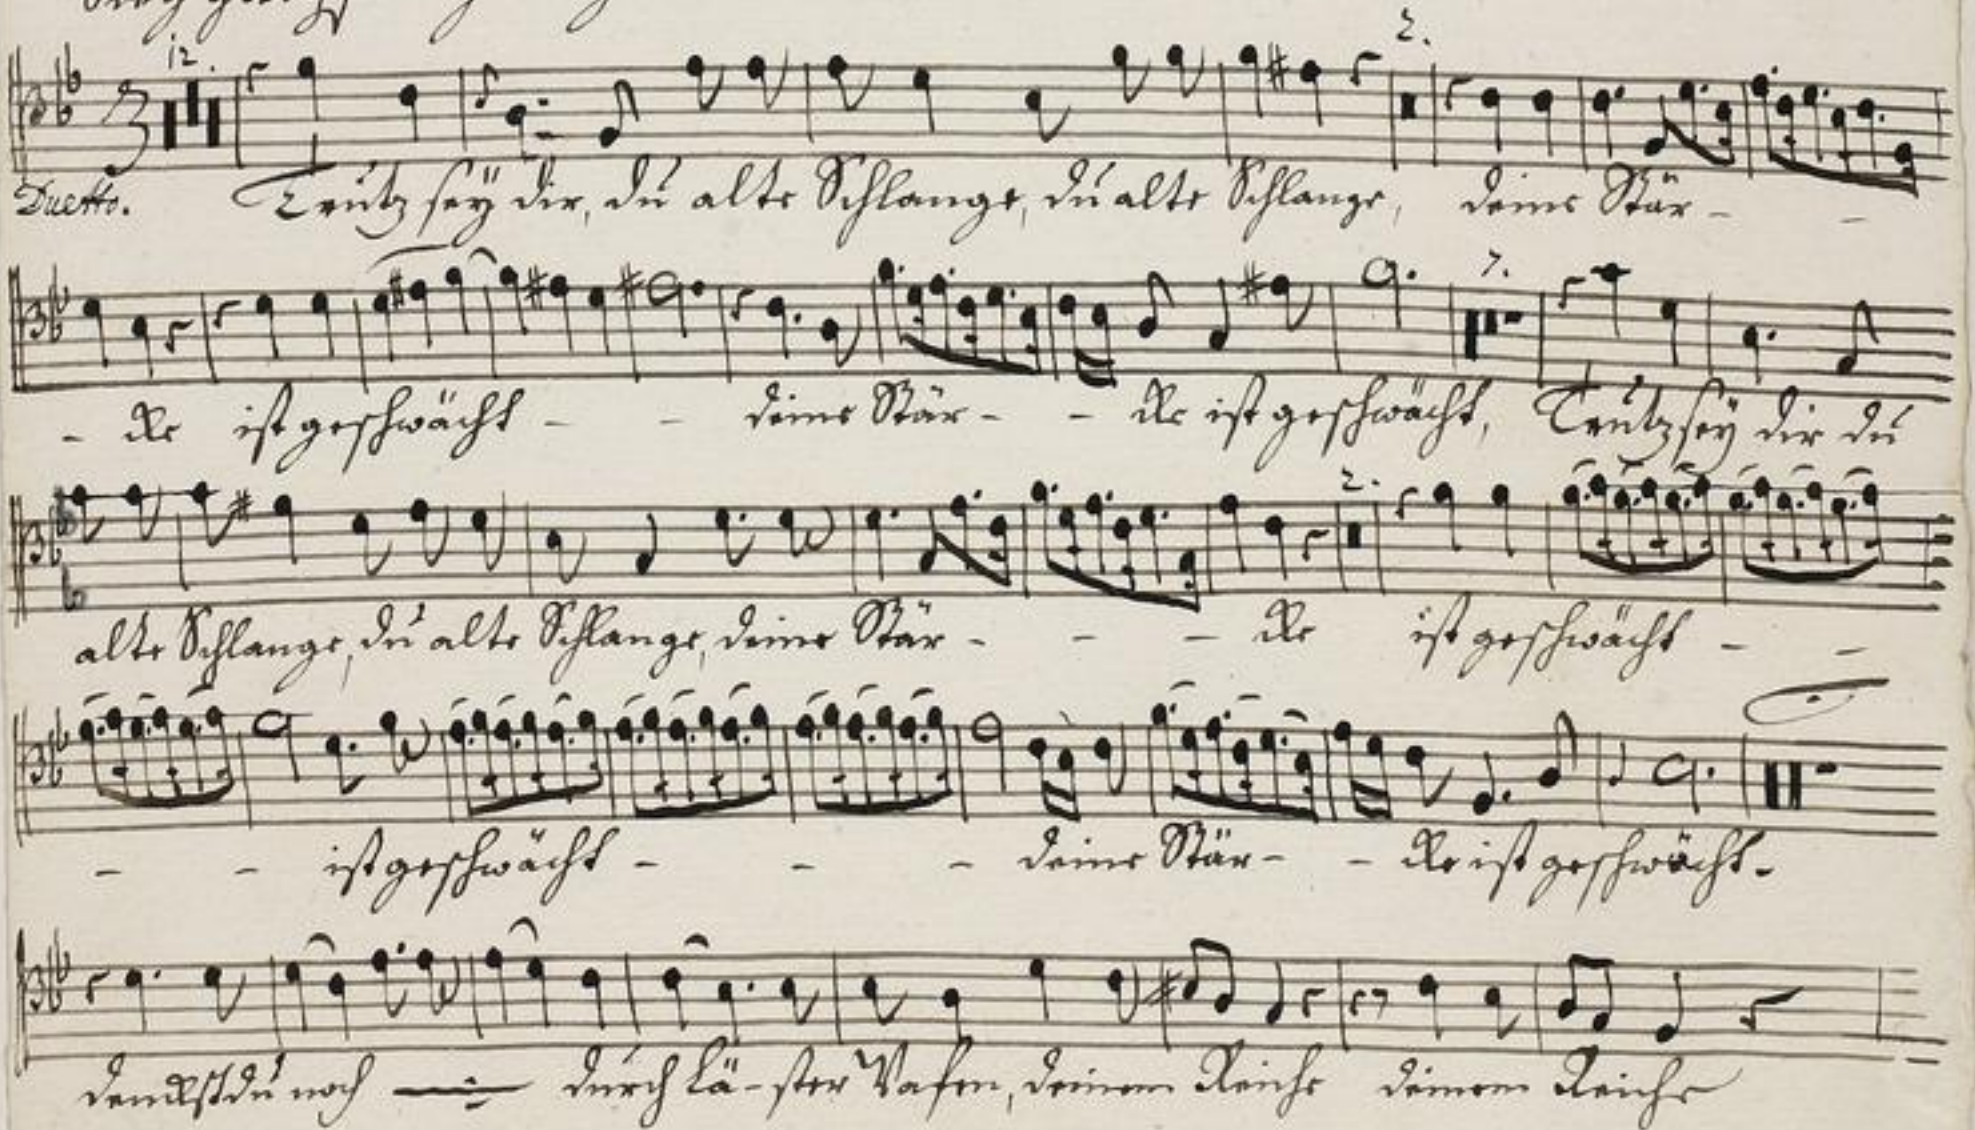 12.
2.
Duetto. Trutz seÿ dir, du alte Schlange, du alte Schlange, deine Stär - -
7.
- cke ist geschwächt - - deine Stär - - cke ist geschwächt, Trutz seÿ dir du
2.
alte Schlange, du alte Schlange, deine Stär - - - cke ist geschwächt - -
- - ist geschwächt - - - deine Stär - - cke ist geschwächt.
denckst du noch durch Lä - ster deinem Reiche deinem Reiche